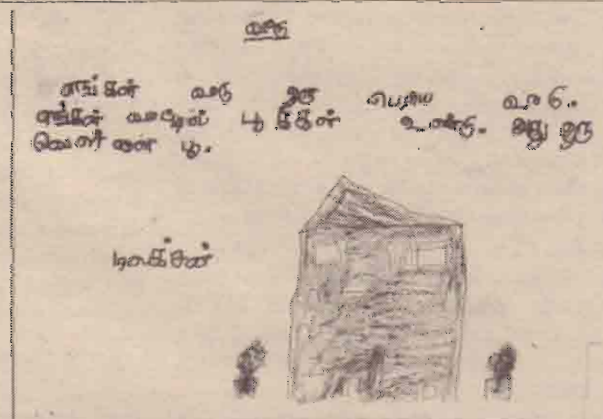 வீடு
எங்கள் வீடு ஒரு பெரிய வீடு.
எங்கள் வீட்டில் பூக்கள் உண்டு. அது ஒரு
வெள்ளை பூ.
டிலக்சன்